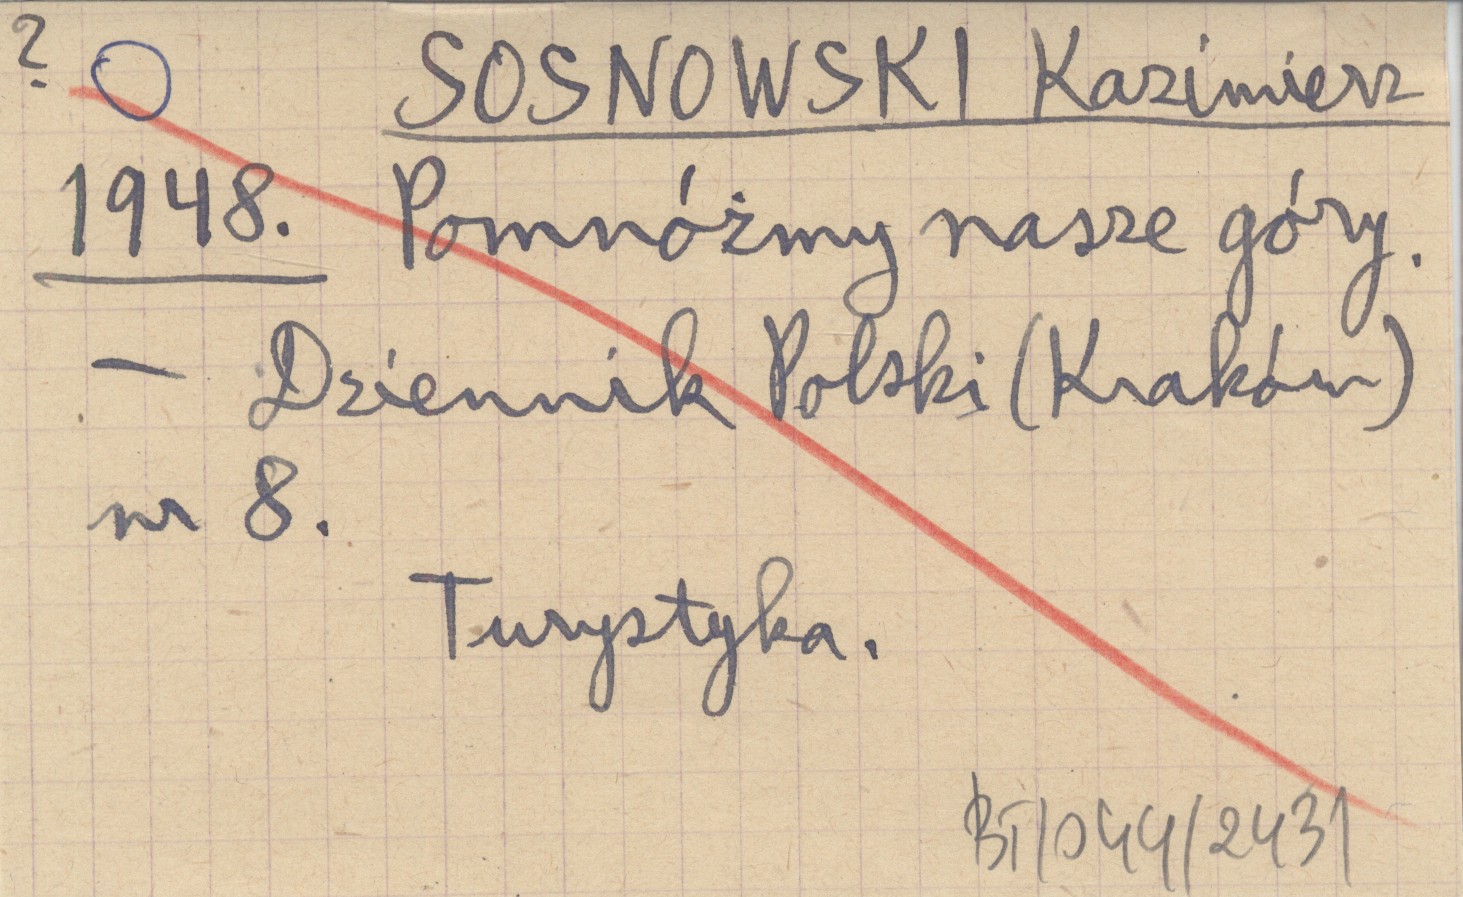 ?
SOSNOWSKI Kazimierz
1948. Pomnóżmy nasze góry.
— Dziennik Polski (Kraków)
nr 8.
Turystyka.
BT/044/2431